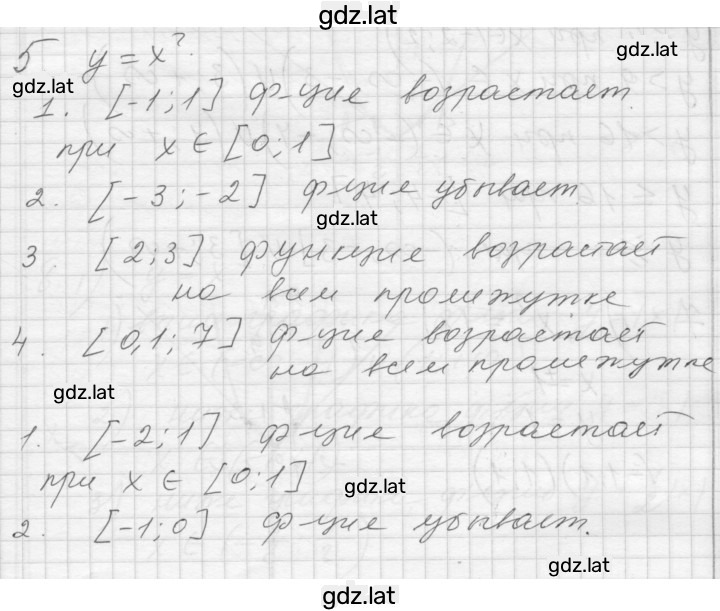 gdz.lat
5 y = x².
gdz.lat
gdz.lat
1. [-1; 1] ф-ция возрастает
при x ∈ [0; 1]
2. [-3; -2] ф-ция убывает.
gdz.lat
3. [2; 3] функция возрастает
на всем промежутке
4. [0,1; 7] ф-ция возрастает
на всем промежутке
gdz.lat
1. [-2; 1] ф-ция возрастает
при x ∈ [0; 1]
gdz.lat
2. [-1; 0] ф-ция убывает.
gdz.lat
gdz.lat